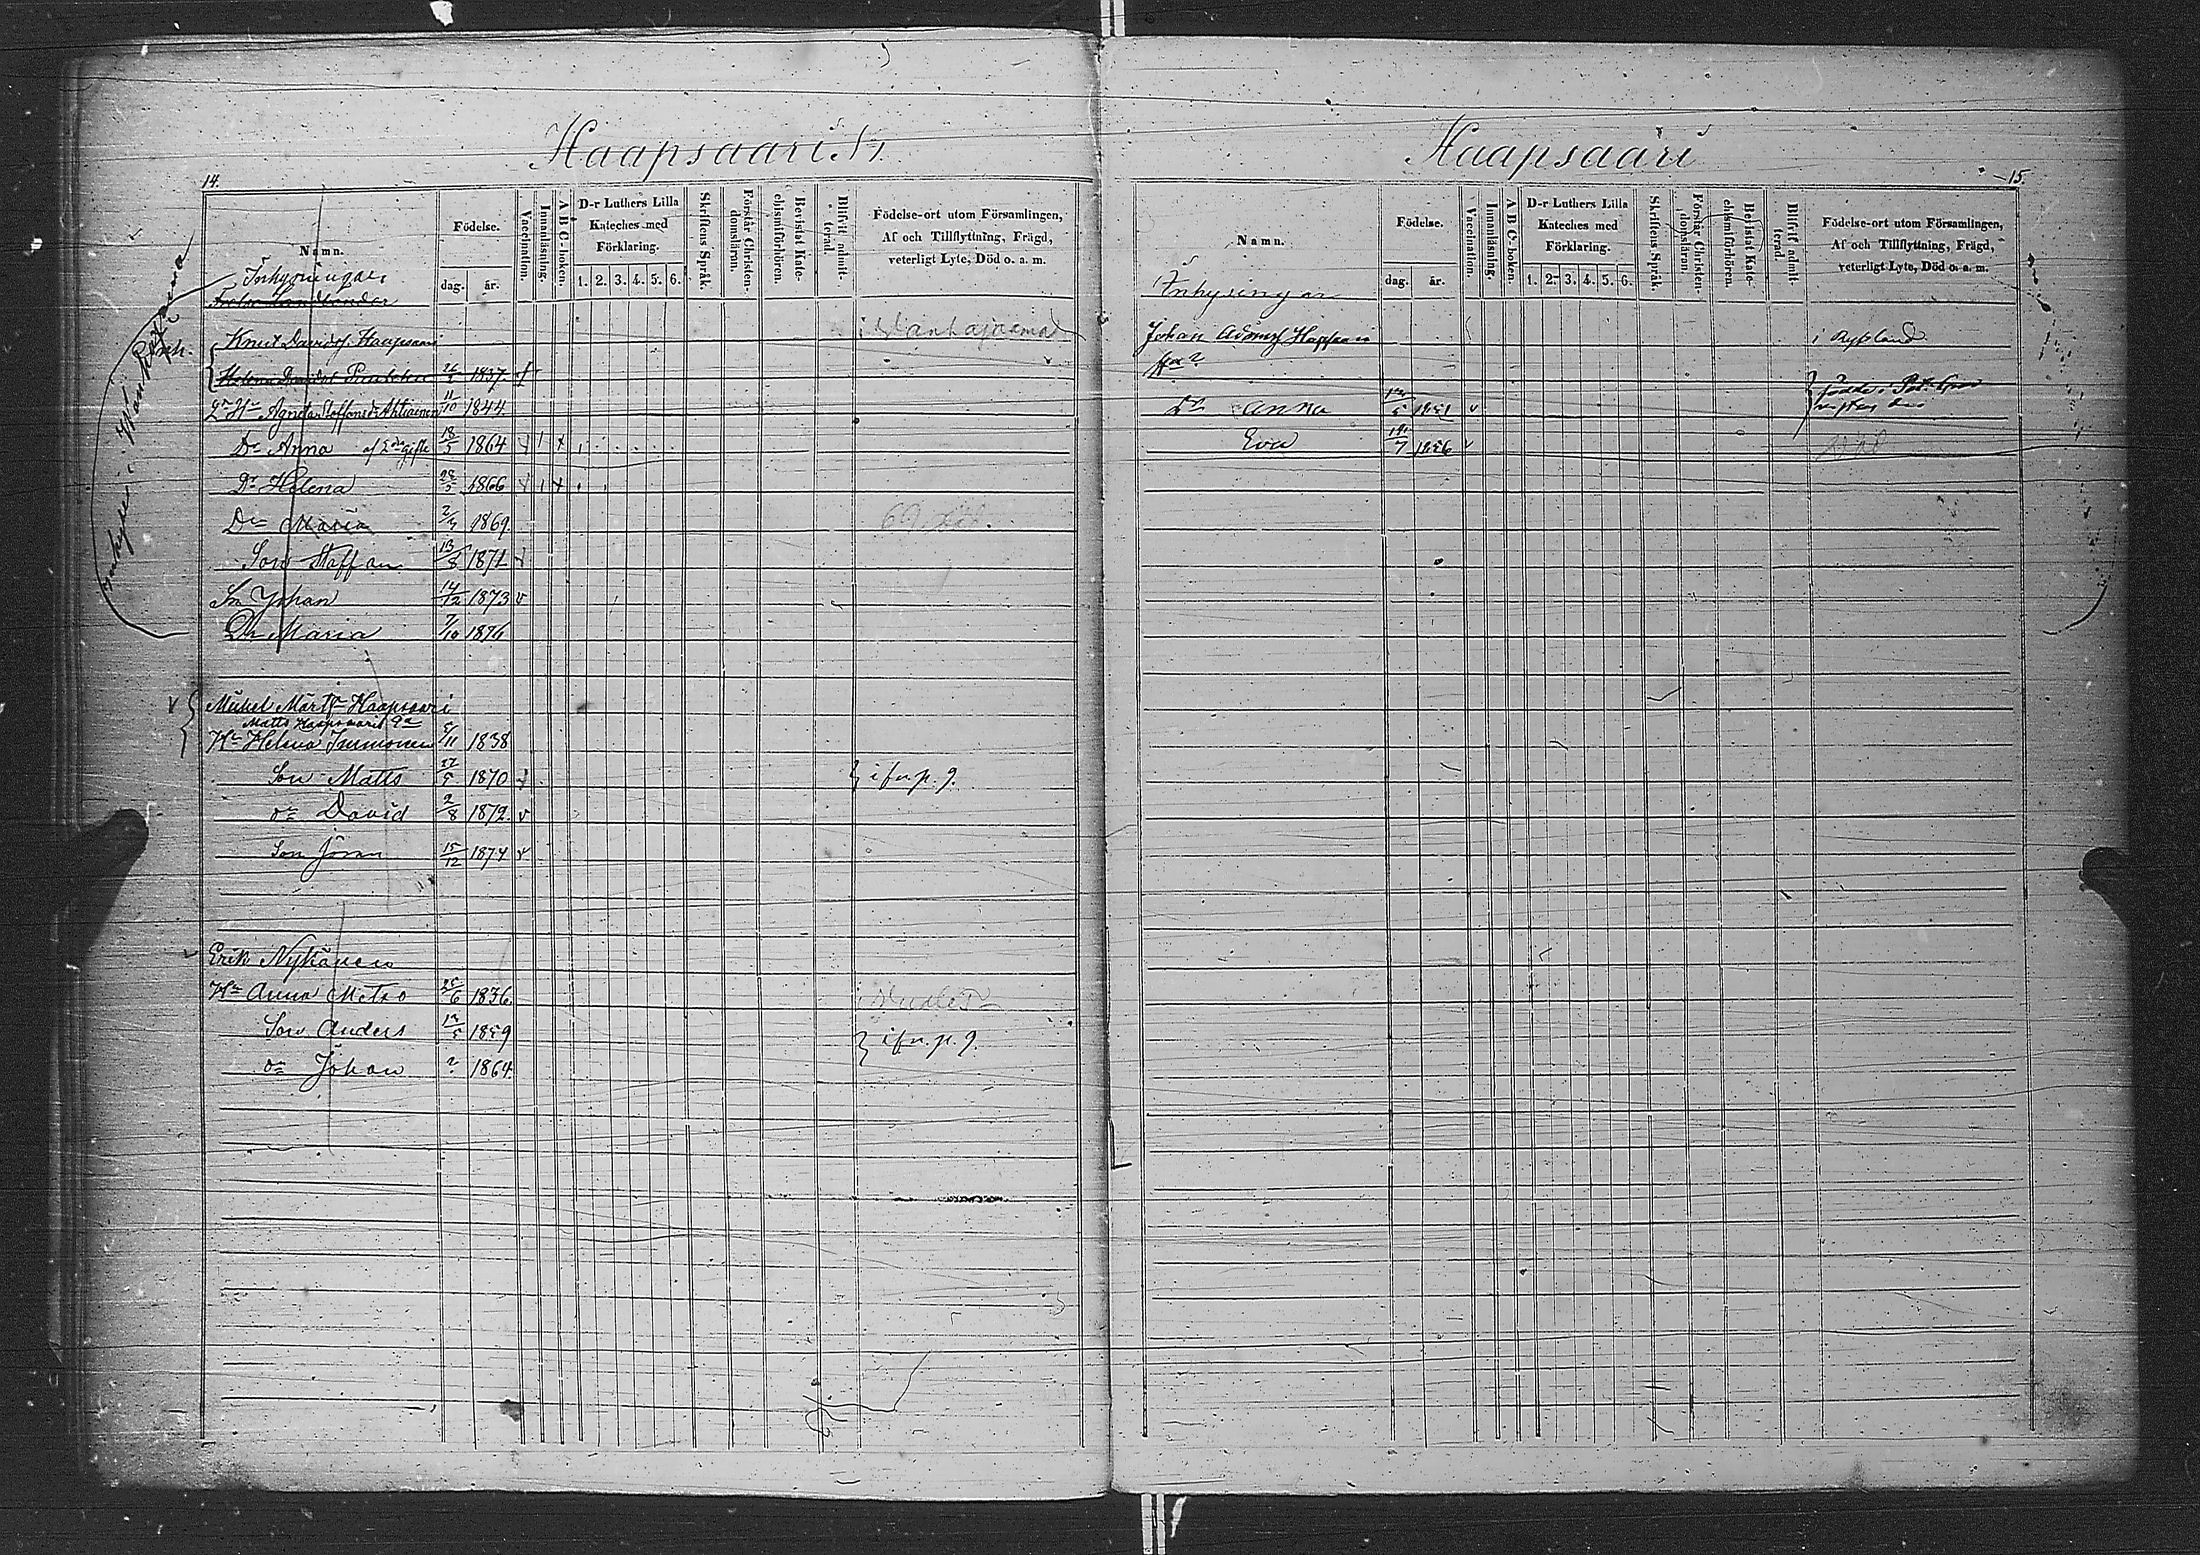 Haapsaari N 1.
14.
Namn.
Födelse.
dag.
år.
Vaccination.
Innanläsning.
A B C-boken.
D-r Luthers Lilla
Kateches med
Förklaring.
1. 2. 3. 4. 5. 6.
Skriftens Språk.
Förstår Christen-
domsläran.
Bevistat Kate-
chismiförhören.
Blifvit admit-
terad.
Födelse-ort utom Församlingen,
Af och Tillflyttning, Frägd,
veterligt Lyte, Död o. a. m.
Inhysingar
Knut Davids. Haapsaari
i Vanhajaama
Helena Davidsd. 1837.
2n Hu Agneta Staffansdr Ahtiainen 11/10 1844
Dr Anna af 2dra gifte 18/5 1864
Dr Helena 1866
Dr Maria 2/7 1869.
69 död.
Son Staffan 13/8 1871
Sn Johan 14/12 1873
Dr Maria 7/10 1876
Mickel Märtsn Haapsaari
Matts Haapsaaris 9a
Hu Helena Immonen 5/11 1838
Son Matts 27/5 1870
i fr. p. 9.
dn David 2/8 1872.
Son Jöran 15/12 1874
Erik Nykänen
Hu Anna Metso 25/6 1836.
Son Anders 1859
i fr. p. 9.
dn Johan ? 1864.
Haapsaari
15.
Namn.
Födelse.
dag.
år.
Vaccination.
Innanläsning.
A B C-boken.
D-r Luthers Lilla
Kateches med
Förklaring.
1. 2. 3. 4. 5. 6.
Skriftens Språk.
Förstår Christen-
domsläran.
Bevistat Kate-
chismiförhören.
Blifvit admit-
terad.
Födelse-ort utom Församlingen,
Af och Tillflyttning, Frägd,
veterligt Lyte, Död o. a. m.
Inhysingar
Johan Haapsaari
i Ryssland
Dr Anna 1851
Eva 1856